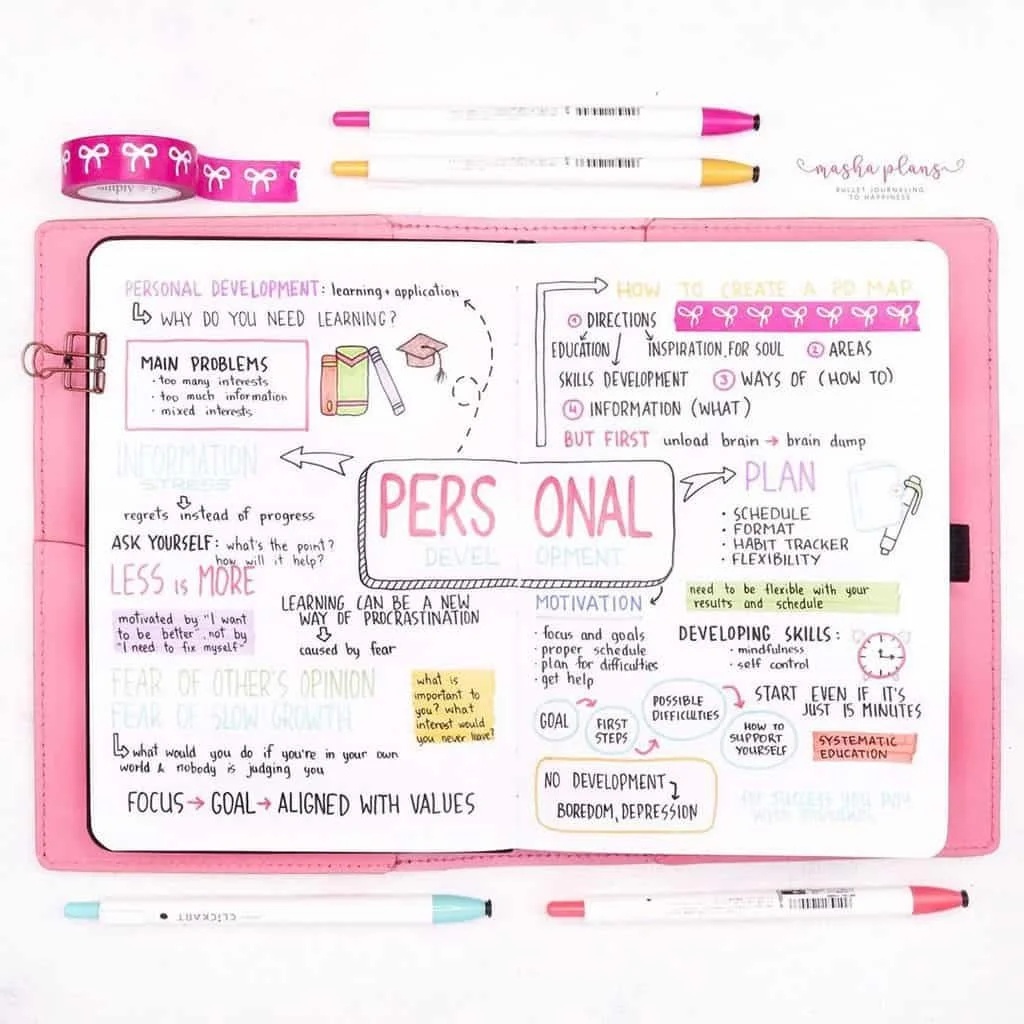 masha plans
BULLET JOURNALING
TO HAPPINESS
PERSONAL DEVELOPMENT: learning + application
WHY DO YOU NEED LEARNING?
MAIN PROBLEMS
· too many interests
· too much information
· mixed interests
INFORMATION
STRESS
regrets instead of progress
ASK YOURSELF: what's the point?
how will it help?
LESS is MORE
motivated by "I want
to be better", not by
"I need to fix myself"
LEARNING CAN BE A NEW
WAY OF PROCRASTINATION
caused by fear
FEAR OF OTHER'S OPINION
FEAR OF SLOW GROWTH
what is
important to
you? what
interest would
you never leave?
what would you do if you're in your own
world & nobody is judging you
FOCUS → GOAL → ALIGNED WITH VALUES
PERSONAL
DEVELOPMENT
HOW TO CREATE A PD MAP
① DIRECTIONS
EDUCATION INSPIRATION, FOR SOUL ② AREAS
SKILLS DEVELOPMENT ③ WAYS OF (HOW TO)
④ INFORMATION (WHAT)
BUT FIRST unload brain → brain dump
PLAN
· SCHEDULE
· FORMAT
· HABIT TRACKER
· FLEXIBILITY
need to be flexible with your
results and schedule
MOTIVATION
· focus and goals
· proper schedule
· plan for difficulties
· get help
DEVELOPING SKILLS:
· mindfulness
· self control
GOAL
FIRST
STEPS
POSSIBLE
DIFFICULTIES
HOW TO
SUPPORT
YOURSELF
START EVEN IF IT'S
JUST 15 MINUTES
SYSTEMATIC
EDUCATION
NO DEVELOPMENT
BOREDOM, DEPRESSION
FOR SUCCESS YOU PAY
WITH
CLICKART